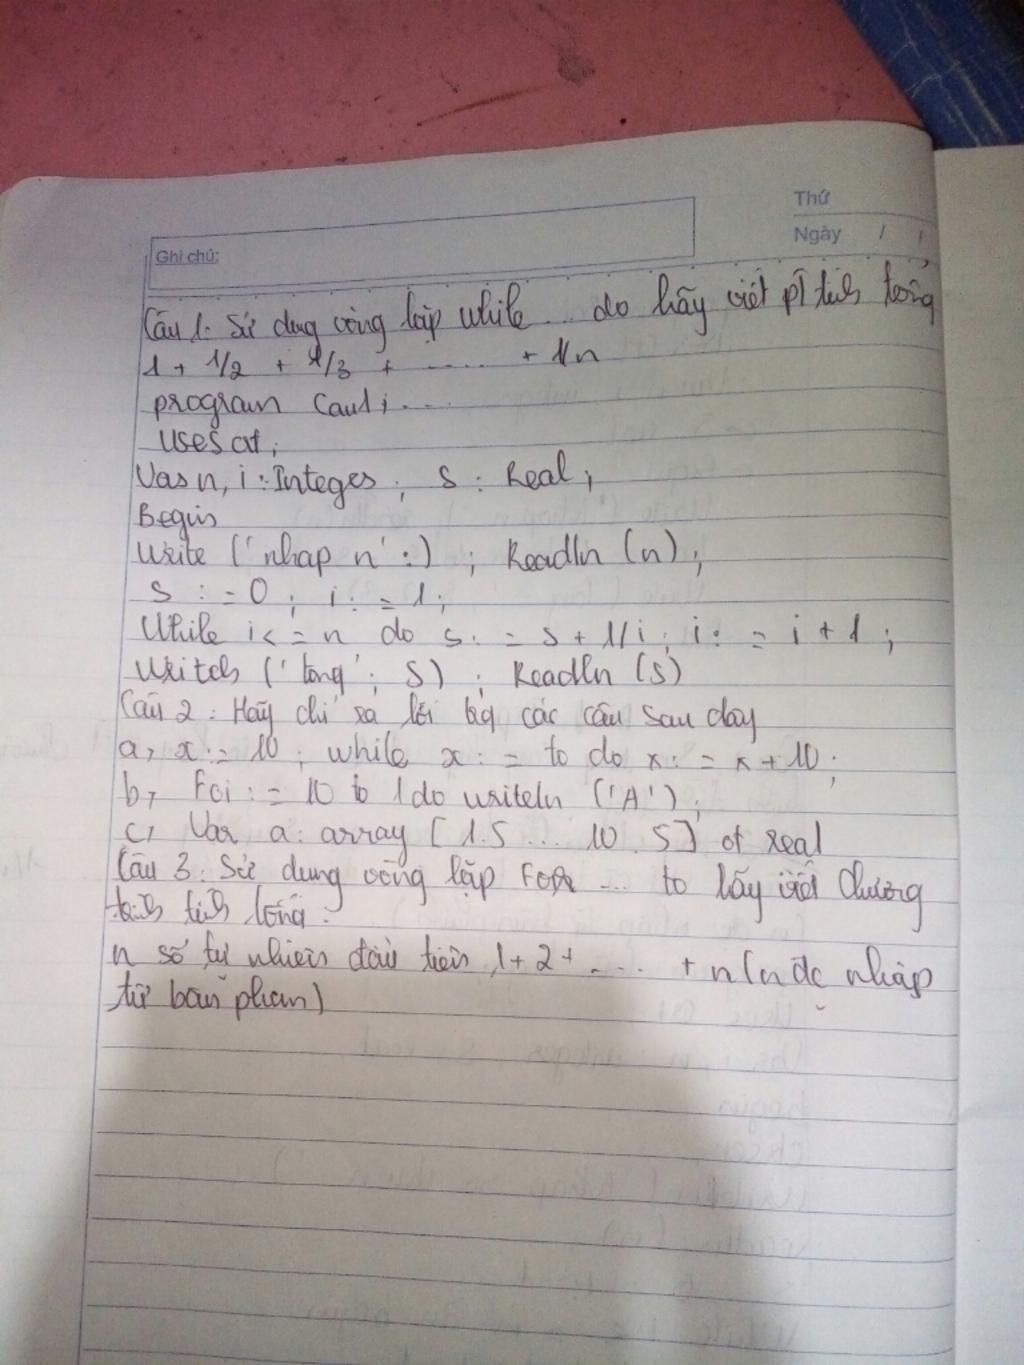 Thứ
Ngày / /
Ghi chú:
Câu 1. Sử dụng vòng lặp while ... do hãy viết pT tính tổng
1 + 1/2 + 1/3 + ..... + 1/n
program Cau1; ...
Uses crt;
Var n, i : Integer ; S : Real ;
Begin
Write ('nhap n' :) ; Readln (n) ;
S : = 0 ; i : = 1 ;
While i < = n do s : = s + 1/i ; i : = i + 1 ;
Writeln ('tong' ; S) ; Readln (S)
Câu 2 : Hãy chỉ ra lỗi các câu sau đây
a, x := 10 ; while x : = to do x : = x + 10 ;
b, For i : = 10 to 1 do writeln ('A') ;
c, Var a : array [1.5 ... 10 . 5] of real
Câu 3 : Sử dụng vòng lặp For ... to hãy viết chương
trình tính tổng :
n số tự nhiên đầu tiên 1 + 2 + .... + n (n đc nhập
từ bàn phím)